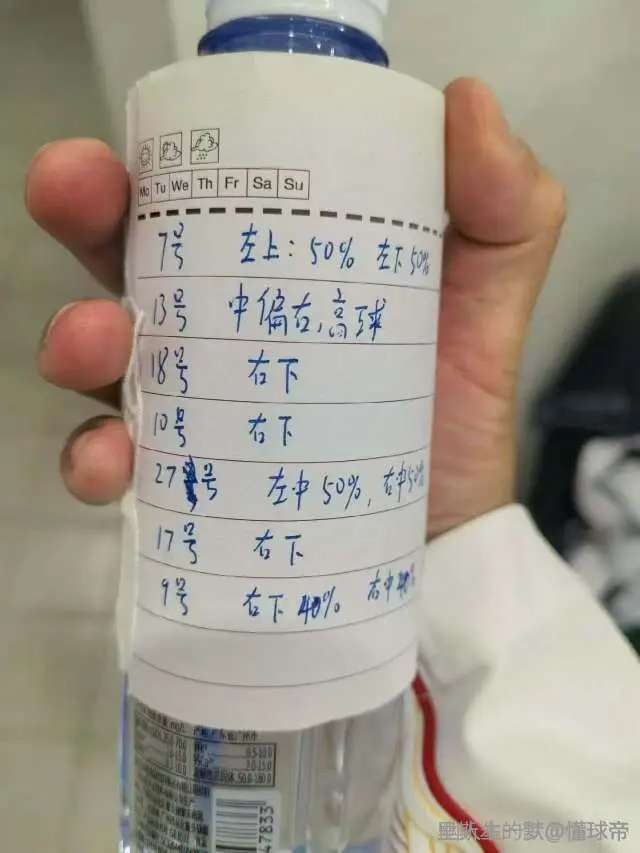 Mo Tu We Th Fr Sa Su
7号 左上: 50% 左下 50%
13号 中偏右,高球
18号 右下
10号 右下
27号 左中 50%, 右中 50%
17号 右下
9号 右下 40% 右中 40%
47833
@懂球帝